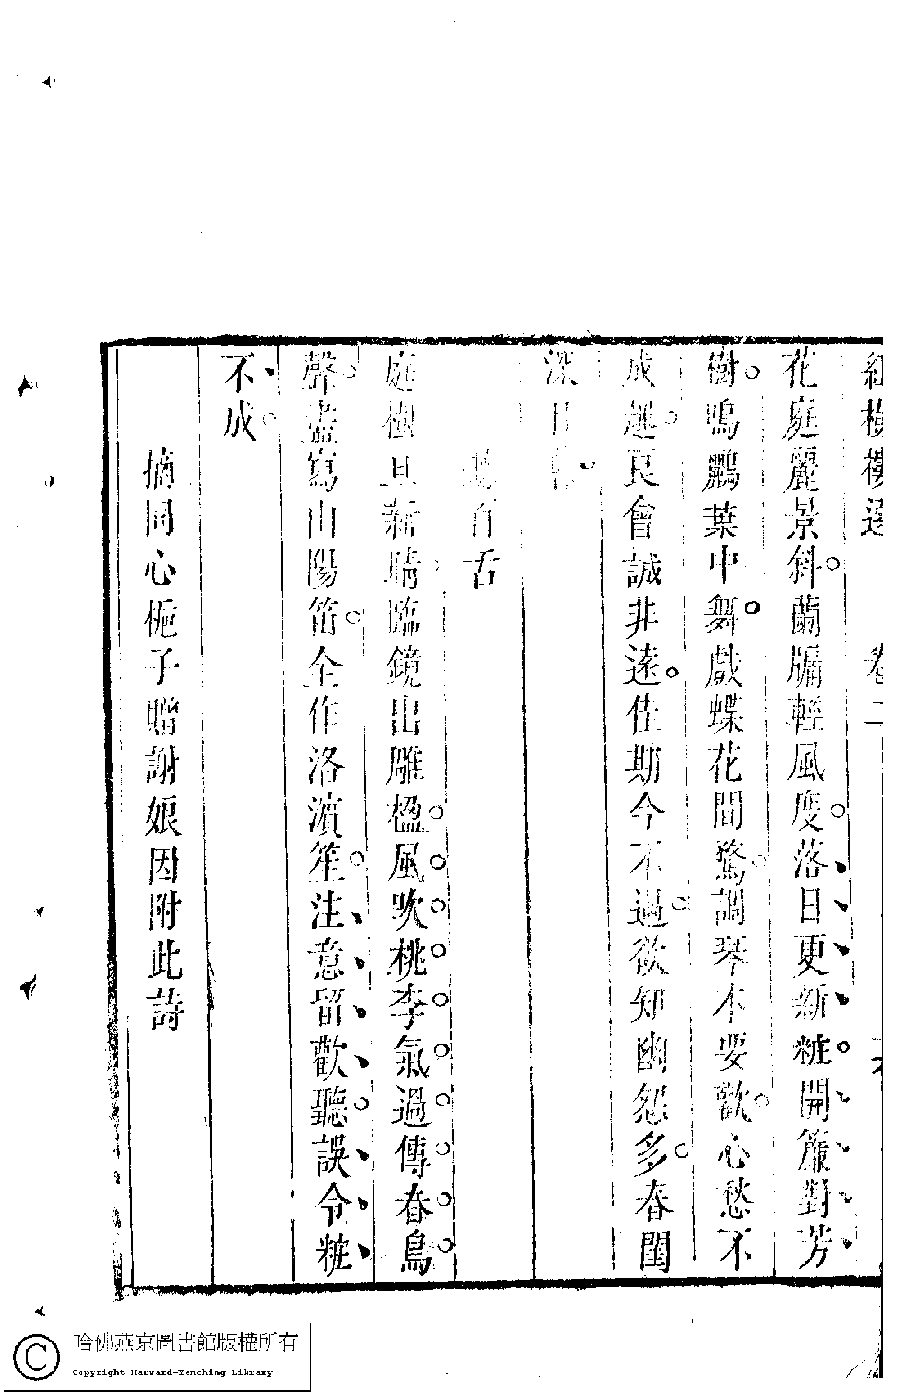 紅樹樓選 卷二
花庭麗景斜。蘭牖輕風度。落日更新粧。開簾對芳
樹。鳴鸝葉中舞。戲蝶花間騖。調琴本要歡。心愁不
成趣。良會誠非遠。佳期今不遇。欲知幽怨多。春閨
深日暮
聽百舌
庭樹旦新晴。臨鏡出雕楹。風吹桃李氣過傳春鳥
聲。盡寫山陽笛。仝作洛濱笙。注意留歡聽。誤令粧
不成。
摘同心梔子贈謝娘因附此詩
哈佛燕京圖書館版權所有
Copyright Harvard-Yenching Library